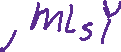 , mLsY